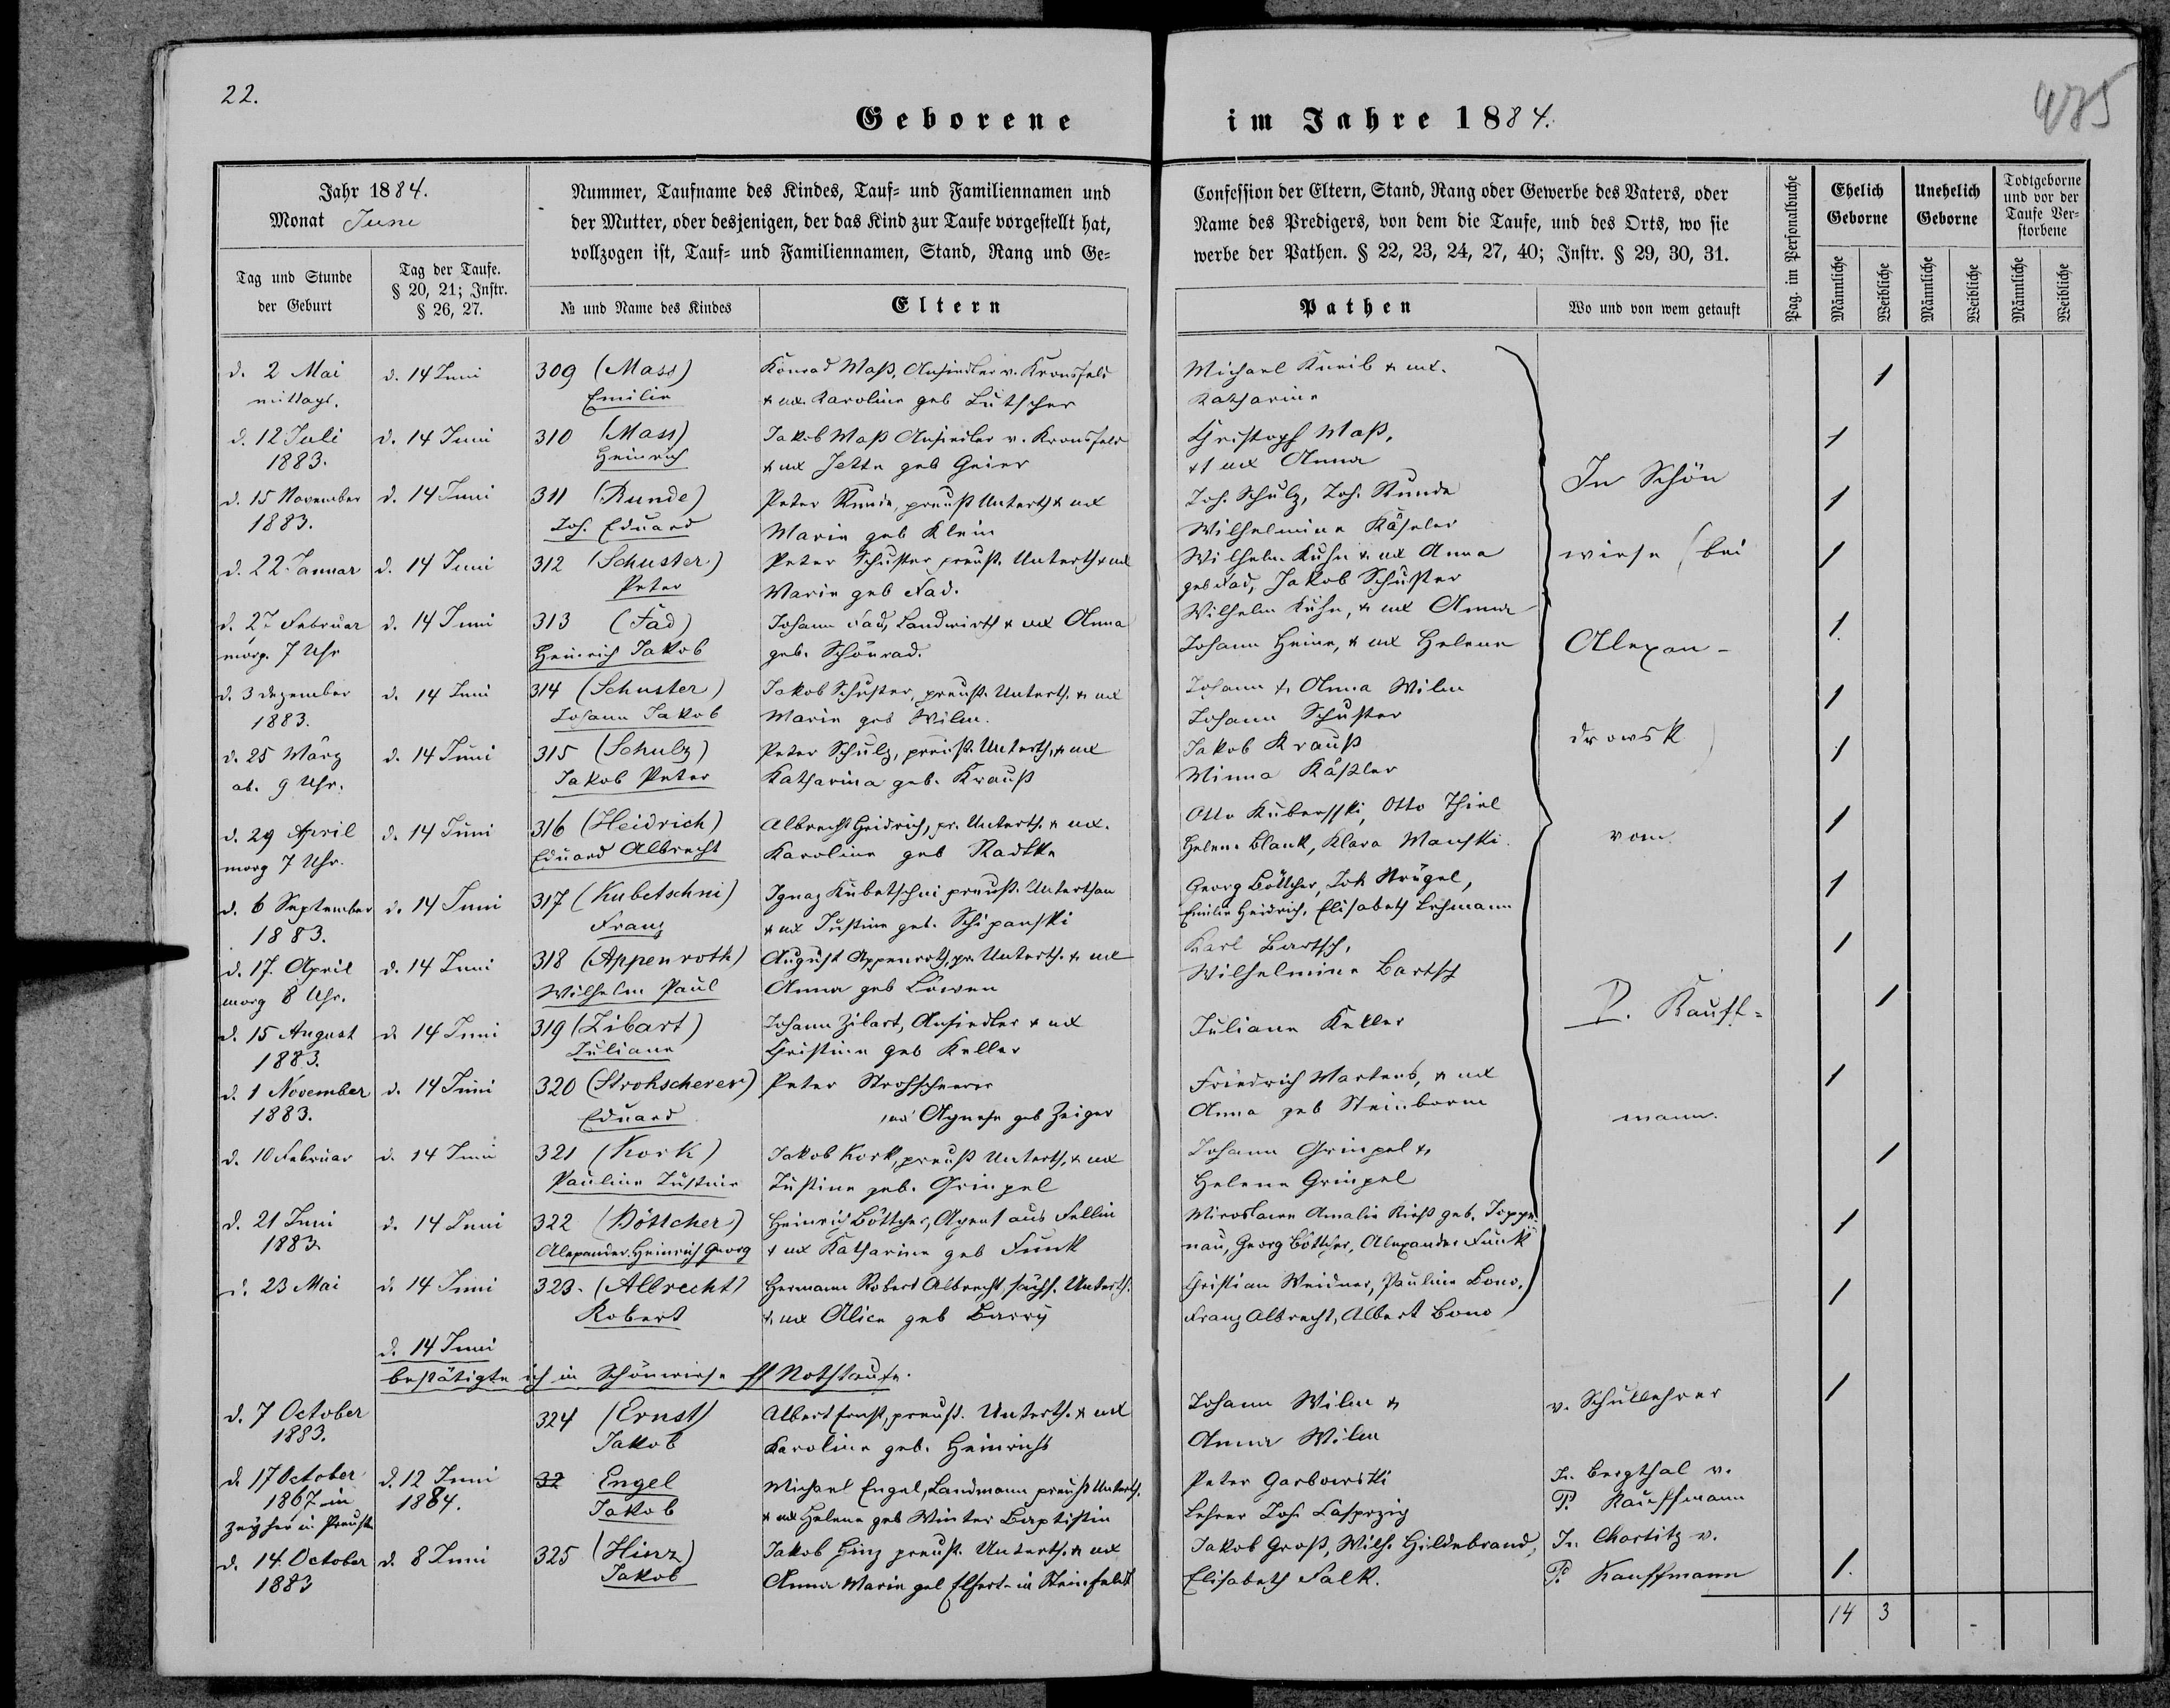 22.
485
Geborene im Jahre 1884.
Jahr 1884.
Monat Juni
Tag und Stunde
der Geburt
Tag der Taufe.
§ 20, 21; Instr.
§ 26, 27.
Nummer, Taufname des Kindes, Tauf- und Familiennamen und
der Mutter, oder desjenigen, der das Kind zur Taufe vorgestellt hat,
vollzogen ist, Tauf- und Familiennamen, Stand, Rang und Ge-
№ und Name des Kindes
Eltern
Confession der Eltern, Stand, Rang oder Gewerbe des Vaters, oder
Name des Predigers, von dem die Taufe, und des Orts, wo sie
werbe der Pathen. § 22, 23, 24, 27, 40; Instr. § 29, 30, 31.
Pathen
Wo und von wem getauft
Pag. im Personalbuche
Ehelich
Geborne
Unehelich
Geborne
Todtgeborne
und vor der
Taufe Ver-
storbene
Männliche
Weibliche
Männliche
Weibliche
Männliche
Weibliche
d. 2 Mai d. 14 Juni 309 (Mass) Konrad Maß, Ansiedler v. Kronsfeld Michael Kneib & ux. 1
mittags. Emilie & ux. Karoline geb Lutscher Katharina
d. 12 Juli d. 14 Juni 310 (Mass) Jakob Maß Ansiedler v. Kronsfeld Christoph Maß, 1
1883. Heinrich & ux Jette geb Geier & ux Anna
In Schön
d. 15 November d. 14 Juni 311 (Runde) Peter Runde, preuß Unterth & ux Joh. Schulz, Joh. Runde 1
1883. Joh. Eduard Marie geb Klein Wilhelmine Käseler
d. 22 Januar d. 14 Juni 312 (Schuster) Peter Schuster preuß. Unterth & ux Wilhelm Kuhn & ux Anna wiese (bei 1
Peter Marie geb Fad. geb Fad, Jakob Schuster
d. 27 Februar d. 14 Juni 313 (Fad) Johann Fad, Landwirth & ux Anna Wilhelm Kuhn, & ux Anna 1
morg. 7 Uhr Heinrich Jakob geb. Schönrad. Johann Heine, & ux Helene Alexan-
d. 3 Dezember d. 14 Juni 314 (Schuster) Jakob Schuster, preuß. Unterth. & ux Johann & Anna Wilm 1
1883. Johann Jakob Marie geb Wilm. Johann Schuster
drowsk)
d. 25 März d. 14 Juni 315 (Schulz) Peter Schulz, preuß. Unterth, & ux Jakob Krauß 1
ab. 9 Uhr. Jakob Peter Katharina geb. Krauß Minna Käßler
d. 29 April d. 14 Juni 316 (Heidrich) Albrecht Heidrich, pr. Unterth. & ux. Otto Kubersski, Otto Thiel 1
morg 7 Uhr. Eduard Albrecht Karoline geb Radtke Helene Blank, Klara Manski. vom
d. 6 September d. 14 Juni 317 (Kubetschni) Ignaz Kubetschni preuß. Unterthan Georg Böttcher, Joh 1
1883. Franz & ux Justine geb. Schipanski Emilie Heidrich, Elisabeth Lehmann
d. 17. April d. 14 Juni 318 (Appenroth) August Appenroth, pr. Unterth. & ux Karl Bartsch, 1
morg 8 Uhr. Wilhelm Paul Anna geb Löwen Wilhelmine Bartsch
P. Kauff-
d. 15 August d. 14 Juni 319 (Zibart) Johann Zibart, Ansiedler & ux Juliane Keller 1
1883. Juliane Christine geb Keller
d. 1 November d. 14 Juni 320 (Strohscherer) Peter Strohscherer Friedrich Martens, & ux 1
1883. Eduard ux Agnese geb Zeiger Anna geb Steinborn mann.
d. 10 Februar d. 14 Juni 321 (Kork) Jakob Kork, preuß Unterth, & ux Johann Grinpel & 1
Pauline Justine Justine geb. Grinpel Helene Grinpel
d. 21 Juni d. 14 Juni 322 (Böttcher) Heinrich Böttcher, Agent aus Fellin Amalie geb. 1
1883. Alexander Heinrich Georg & ux Katharine geb Funk nau, Georg Böttcher, Alexander Funk
d. 23 Mai d. 14 Juni 323. (Albrecht) Hermann Robert Albrecht, sächs. Unterth. Christian Weidner, Pauline Bono, 1
Robert & ux Alice geb Barry Franz Albrecht, Albert Bono
d. 14 Juni
bestätigte ich in Schönwiese ff Nothtaufe.
d. 7 October 324 (Ernst) Albert Ernst, preuß. Unterth. & ux Johann Wilm & v. Schullehrer 1
1883. Jakob Karoline geb. Heinrichs Anna Wilm
d. 17 October d. 12 Juni 32 Engel Michael Engel, Landmann preuß Unterth. Peter Garbowski In Bergthal v.
1867 in 1884. Jakob & ux Helene geb Winter Baptistin Lehrer Joh. P. Kauffmann
in Preuß
d. 14. October d. 8 Juni 325 (Hinz) Jakob Hinz preuß. Unterth. & ux Jakob Groß, Wilh. Hildebrand, In Chortitz v.
1883 Jakob Anna Marie geb in Steinfeldt Elisabeth Falk. P. Kauffmann 1.
14 3 -